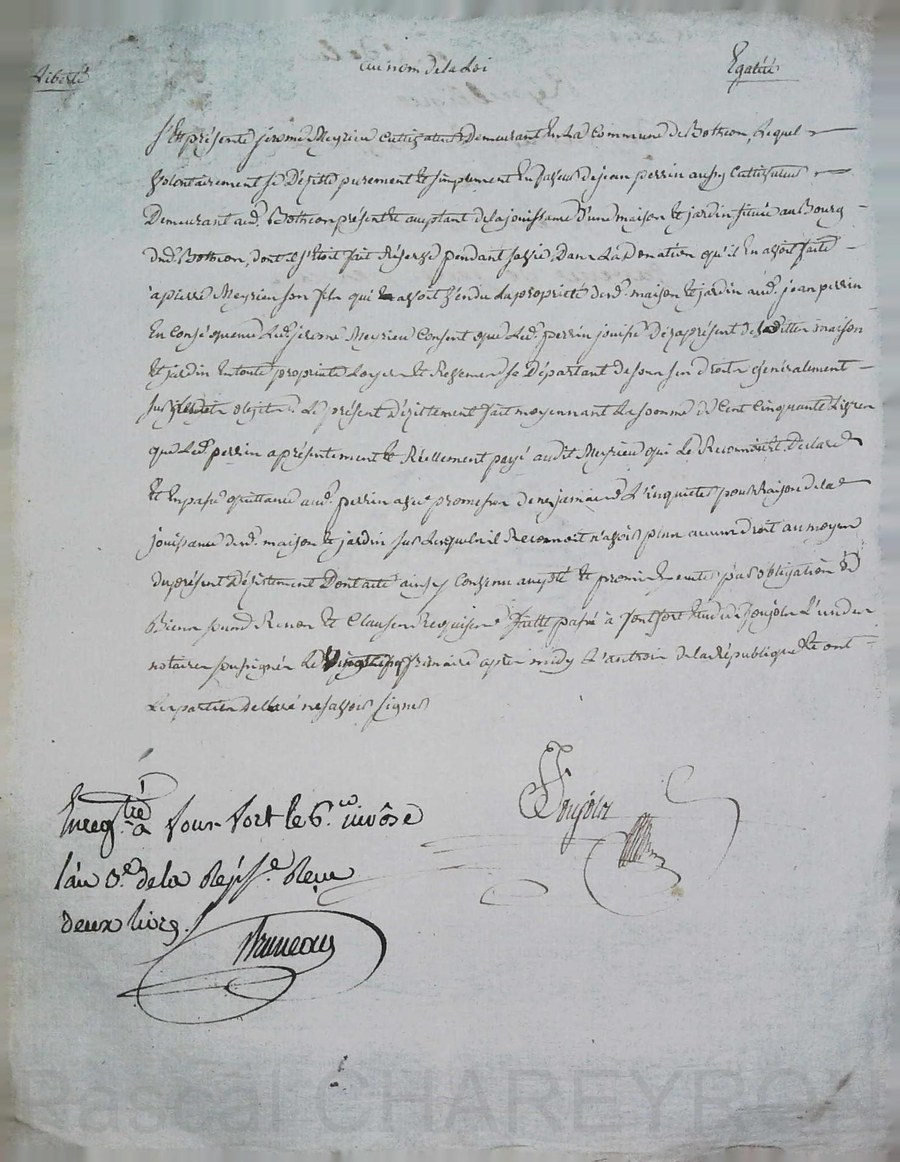 Liberté au nom de la Loi Egalité
S'Est présenté jerome Meyrieu Cultivateur Demeurant En La Commune de Botheon, Lequel
volontairement se Désisté purement Et simplement En faveur de jean perrin aussy Cultivateur
Demeurant aud. Botheon présent Et aceptant de la jouissance d'une maison Et jardin située au Bourg
dud. Botheon, dont il s'étoit fait Réserve pendant sa vie, Dans La Donation qu'il En avoit faite
a pierre Meyrieu son fils qui avoit vendu La propriété desd. maison Et jardin aud. jean perrin
En Conséquence Led. jerome Meyrieu Consent que Led. perrin jouisse Dez a présent desdittes maison
Et jardin En toute propriété Se Départant de tous ses droits généralement
Le présent désistement fait moyennant La somme de Cent Cinquante Livres
que Led. perrin a présentement Et Réellement payé audit Meyrieu qui Le Reconnoit, Declare
Et En passe quittance aud. perrin avec promesse de ne jamais L'inquieter pour Raison de la
jouissance desd. maison Et jardin sur Lesquels il Reconnoit n'avoir plus aucun Droit au moyen
du présent Désistement Dont acte ainsy Convenu acepté Et promis Executer par obligation de
Biens soumd. Renon. Et Clauses Requises fait Et passé à fontfort Etude De goujolx L'un des
notaires soussignés Le frimaire après midy L'an trois de la République Et ont
Les parties declaré ne savoir signer
Goujolx
Enregtré a fonfort le 6. nivôse
l'an 3.e de la Rép. Reçu
deux livres.
Bruneau
Pascal CHAREYRON